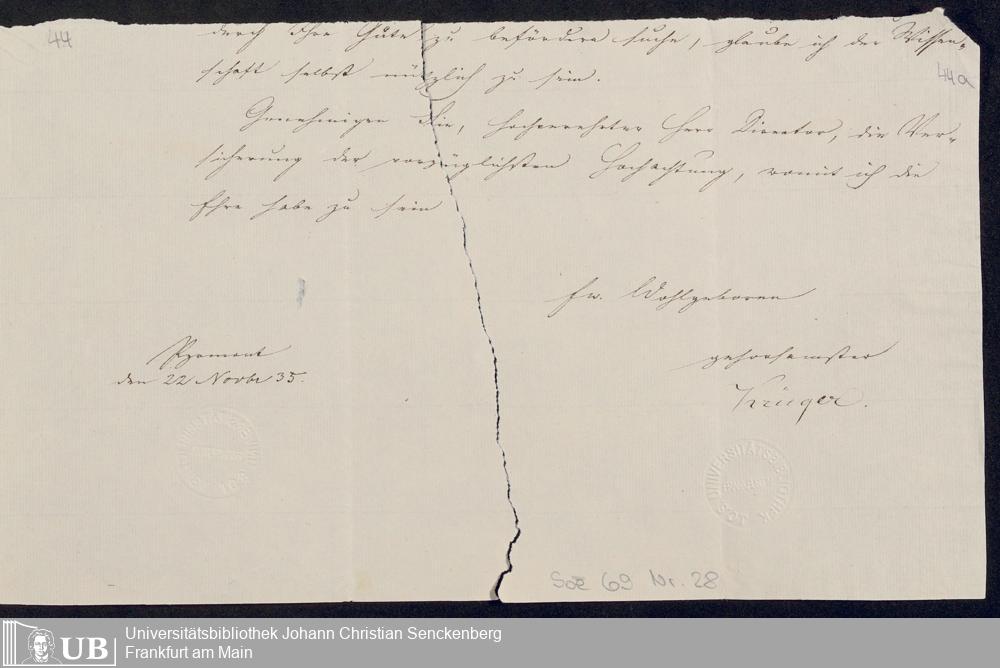 44
durch Ihre Güte zu befördern suche, glaube ich der Wissen-
44a
schaft selbst nützlich zu sein.
Genehmigen Sie, hochverehrter Herr Director, die Ver-
sicherung der vorzüglichsten Hochachtung, womit ich die
Ehre habe zu sein
Ew. Wohlgeboren
Pyrmont
den 22 Novbr 35.
gehorsamster
Krüger.
UNIVERSITÄTSBIBLIOTHEK
Soe 69 Nr. 28
UB
Universitätsbibliothek Johann Christian Senckenberg
Frankfurt am Main